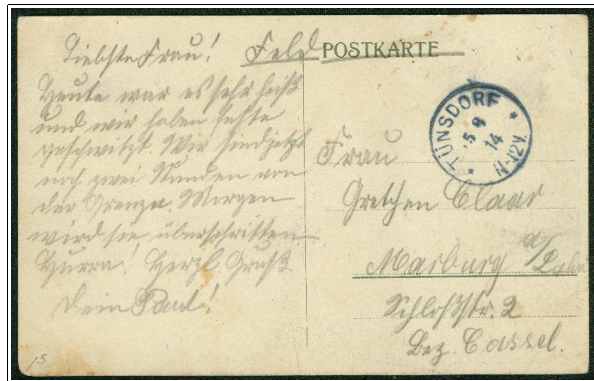 Liebste Frau!
Heute war es sehr heiß
und wir haben feste
geschwitzt. Wir sind jetzt
noch zwei Stunden von
der Grenze. Morgen
wird sie überschritten
Hurra! Herzl. Gruß
Dein Paul!
15
Feld POSTKARTE
TÜNSDORF
14
11-12V.
Frau
Gretchen Claar
Marburg a/Lahn
Schloßstr. 2
Bez. Cassel.